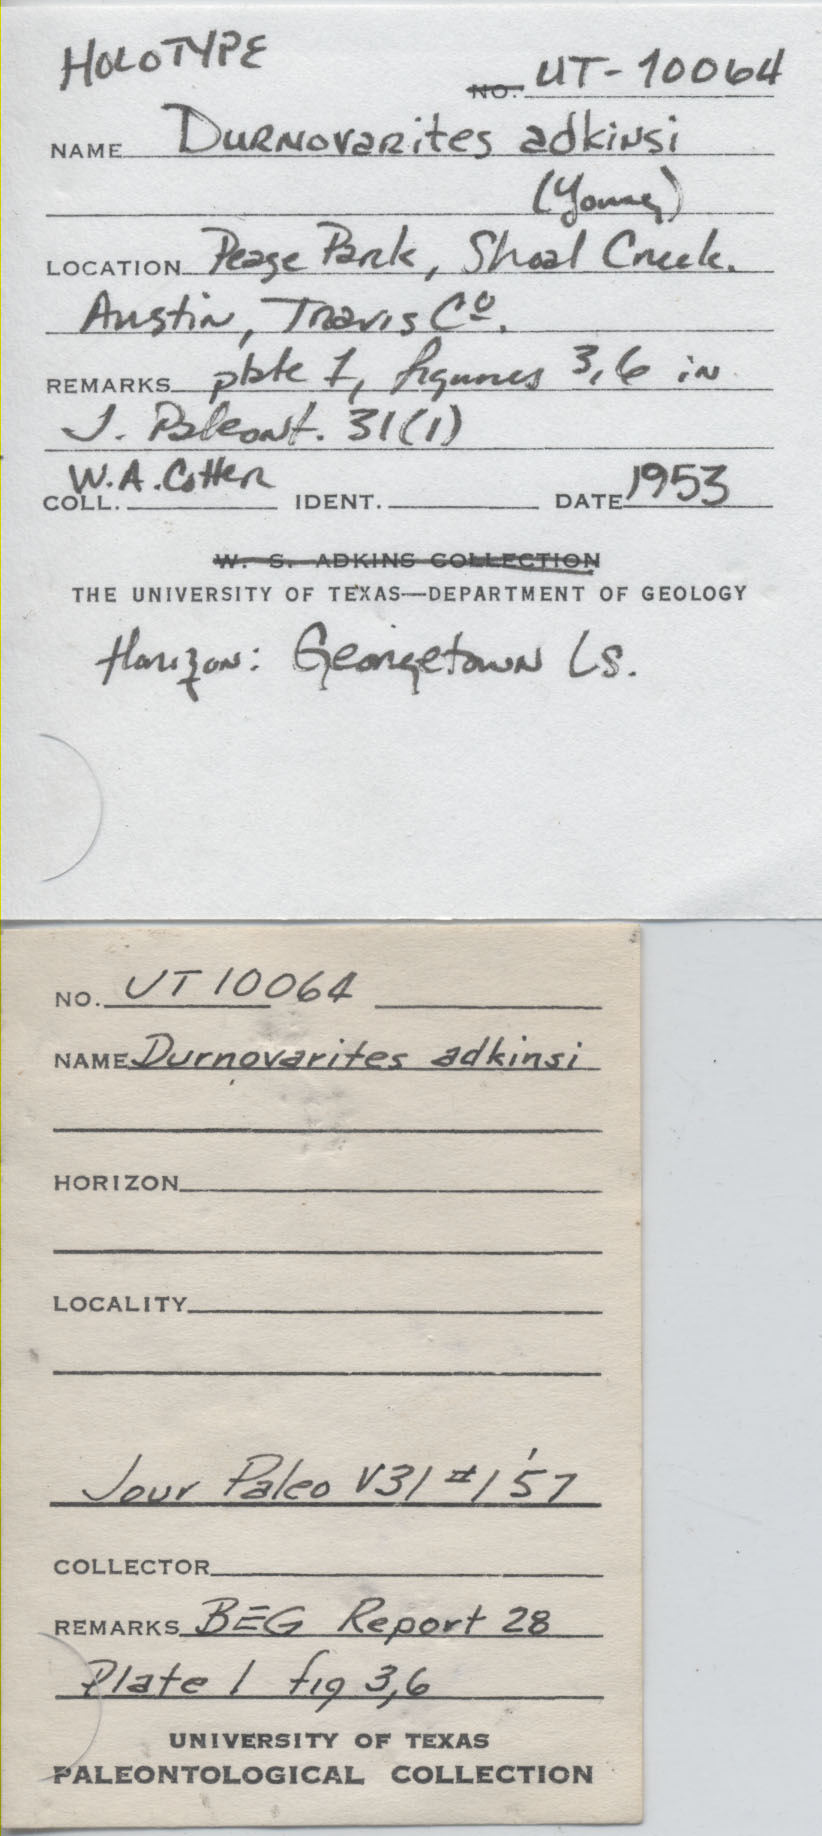 HOLOTYPE
NO. UT-10064
NAME Durnovarites adkinsi
(Young)
LOCATION Pease Park, Shoal Creek.
Austin, Travis Co.
REMARKS plate 1, figures 3,6 in
J. Paleont. 31(1)
W.A. Cotter
COLL. IDENT. DATE 1953
W. S. ADKINS COLLECTION
THE UNIVERSITY OF TEXAS—DEPARTMENT OF GEOLOGY
Horizon: Georgetown Ls.
NO. UT 10064
NAME Durnovarites adkinsi
HORIZON
LOCALITY
Jour Paleo V31 #1 '57
COLLECTOR
REMARKS BEG Report 28
Plate 1 fig 3,6
UNIVERSITY OF TEXAS
PALEONTOLOGICAL COLLECTION